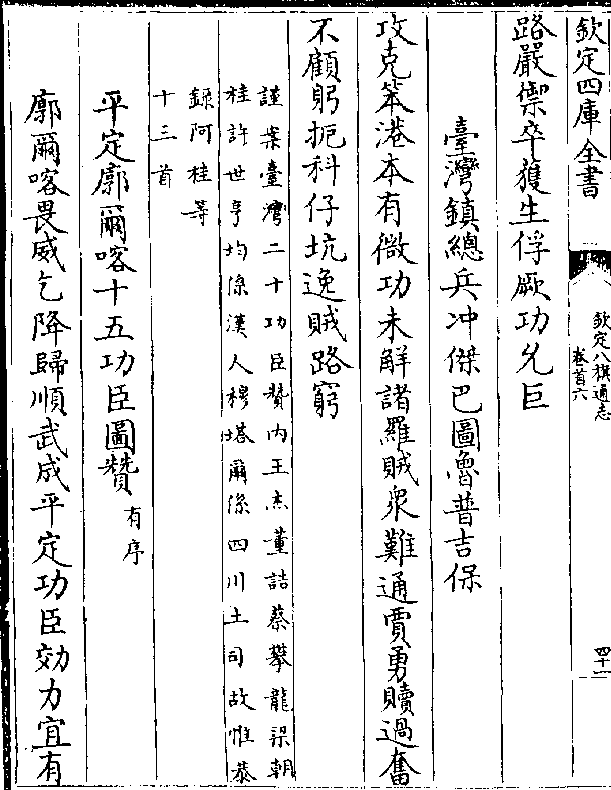 欽定四庫全書
欽定八旗通志
卷首六
四十一
路嚴禦卒獲生俘厥功允巨
臺灣鎮總兵冲傑巴圖魯普吉保
攻克笨港本有微功未解諸羅賊衆難通賈勇贖過奮
不顧躬扼科仔坑逸賊路窮
謹案臺灣二十功臣贊内王杰董誥蔡攀龍梁朝
桂許世亨均係漢人穆塔爾係四川土司故惟恭
録阿桂等
十三首
平定廓爾喀十五功臣圖贊有序
廓爾喀畏威乞降歸順武成平定功臣効力宜有